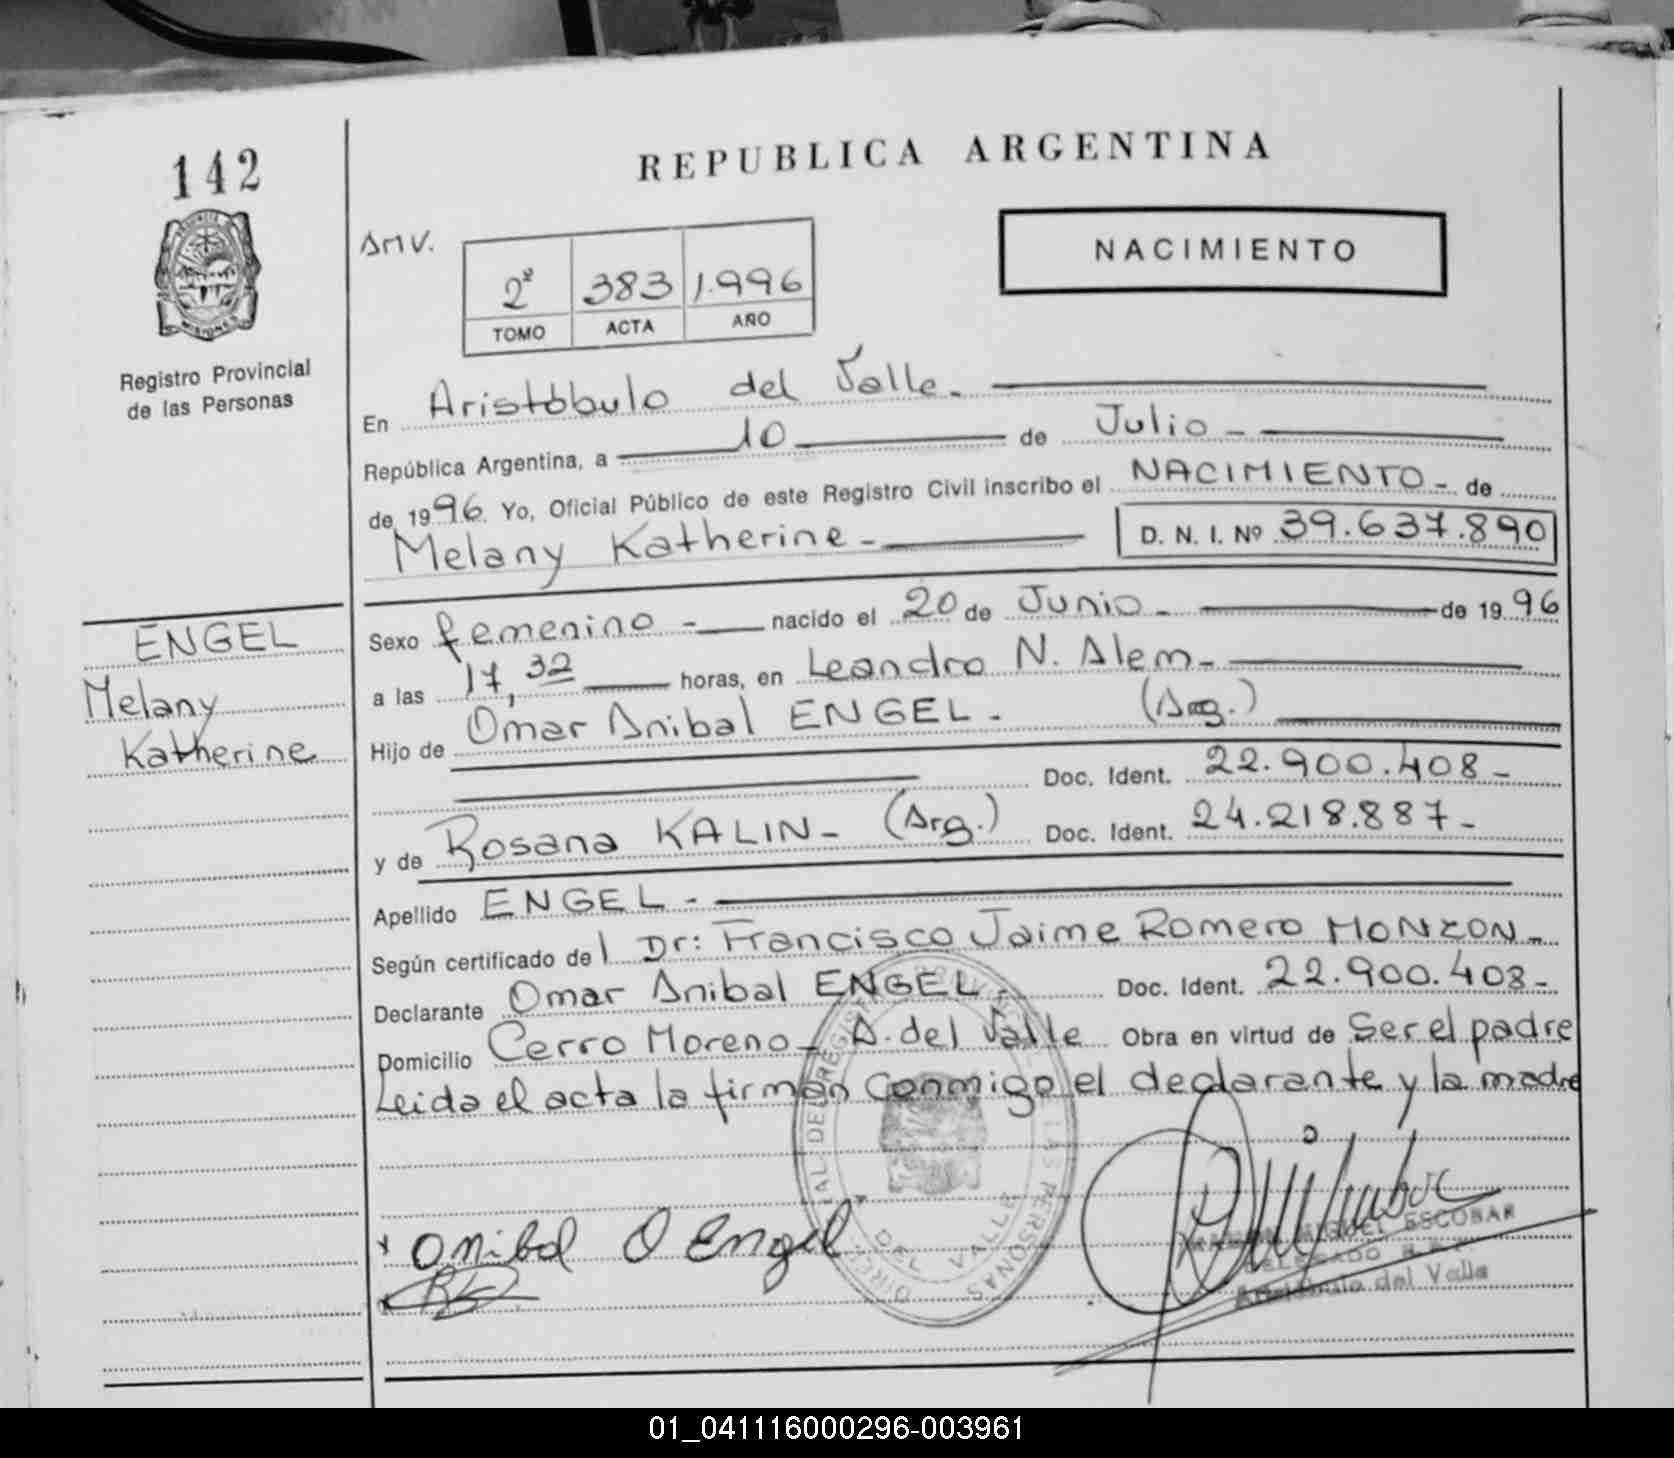 142
REPUBLICA ARGENTINA
PROVINCIA
MISIONES
Registro Provincial
de las Personas
AMV.
2º 383 1.996
TOMO ACTA AÑO
NACIMIENTO
En Aristóbulo del Valle.
República Argentina, a 10 de Julio -
de 1996. Yo, Oficial Público de este Registro Civil inscribo el NACIMIENTO - de
Melany Katherine - D. N. I. Nº 39.637.890
ENGEL
Melany
Katherine
Sexo femenino - nacido el 20 de Junio - de 1996
a las 17,32 horas, en Leandro N. Alem -
Hijo de Omar Anibal ENGEL - (Arg.)
Doc. Ident. 22.900.408 -
y de Rosana KALIN - (Arg.) Doc. Ident. 24.218.887 -
Apellido ENGEL -
Según certificado de l Dr: Francisco Jaime Romero MONZON -
Declarante Omar Anibal ENGEL - Doc. Ident. 22.900.408 -
Domicilio Cerro Moreno - A. del Valle Obra en virtud de Ser el padre
Leida el acta la firman conmigo el declarante y la madre
Anibal O Engel
DEL REGISTRO PROVINCIAL DE LAS PERSONAS
DEL VALLE
RAMON MIGUEL ESCOBAR
DELEGADO R.P.P.
Aristóbulo del Valle
01_041116000296-003961